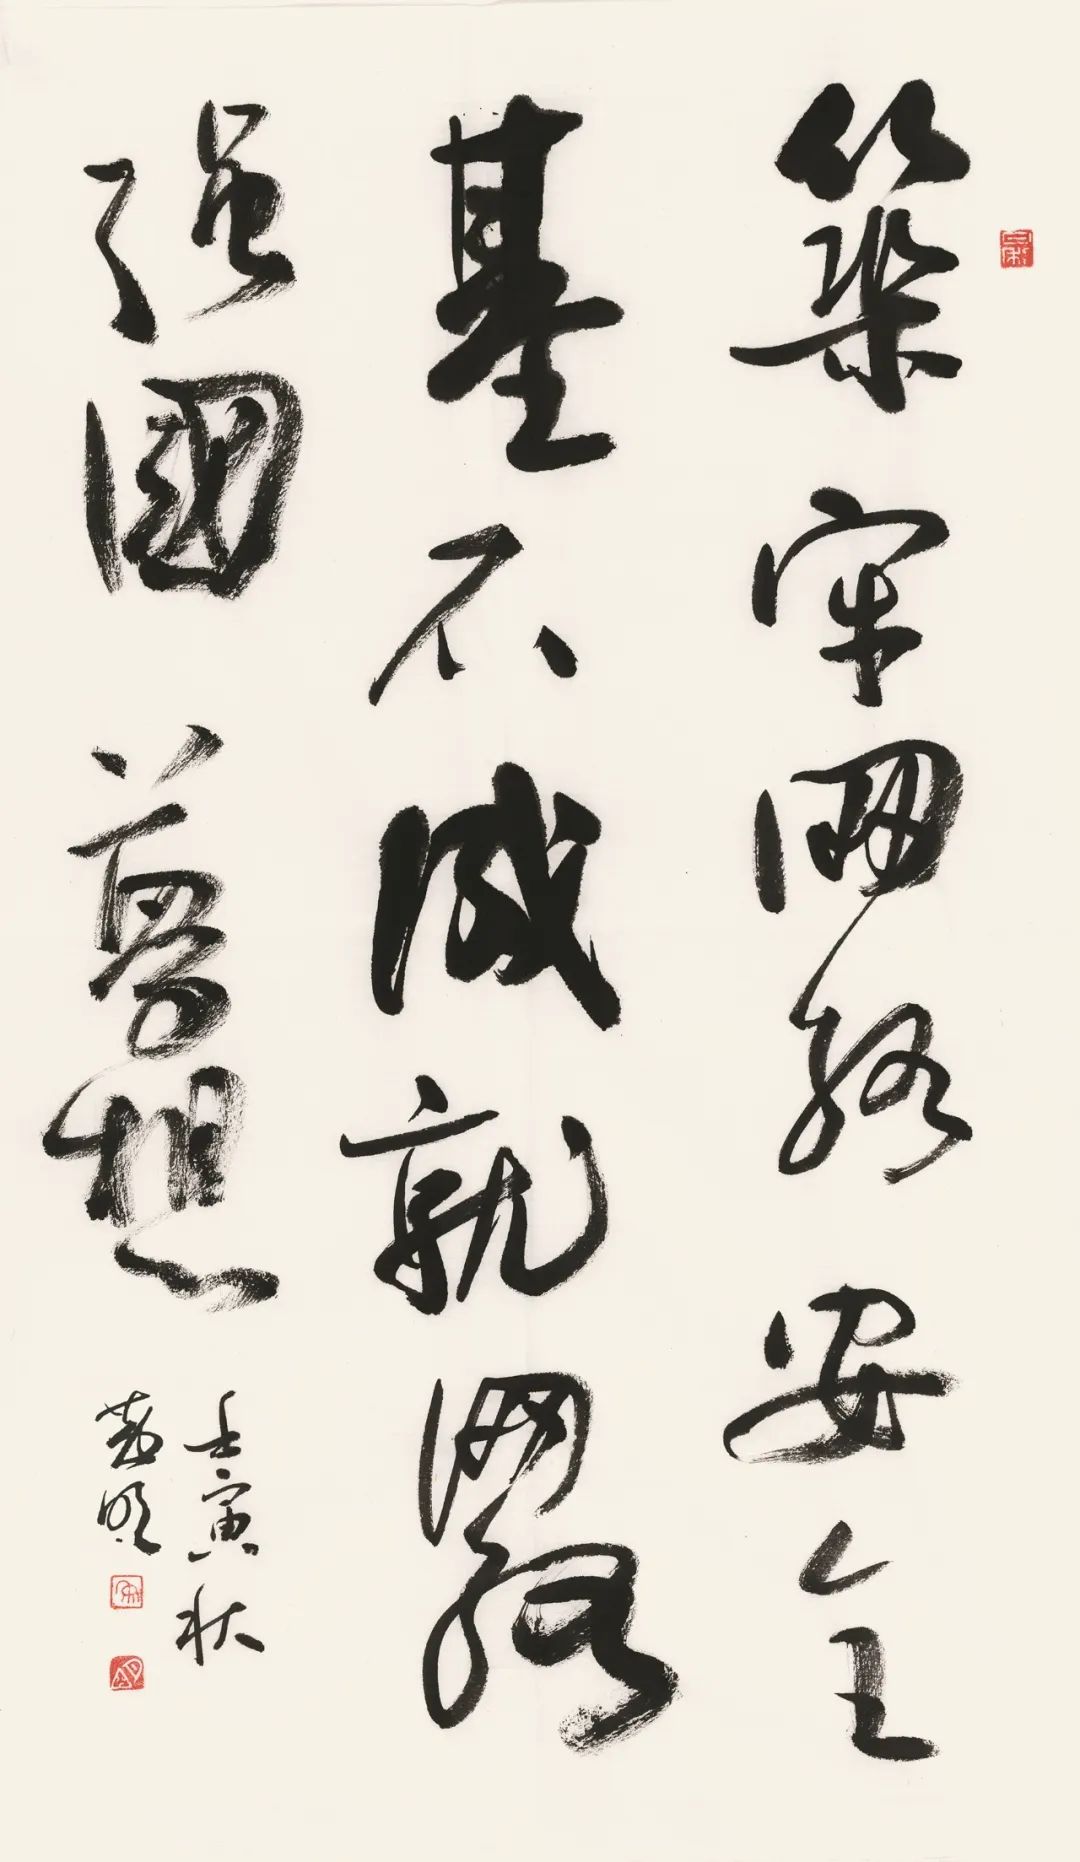 築牢網絡安全
基石成就網絡
强國夢想
壬寅秋
明